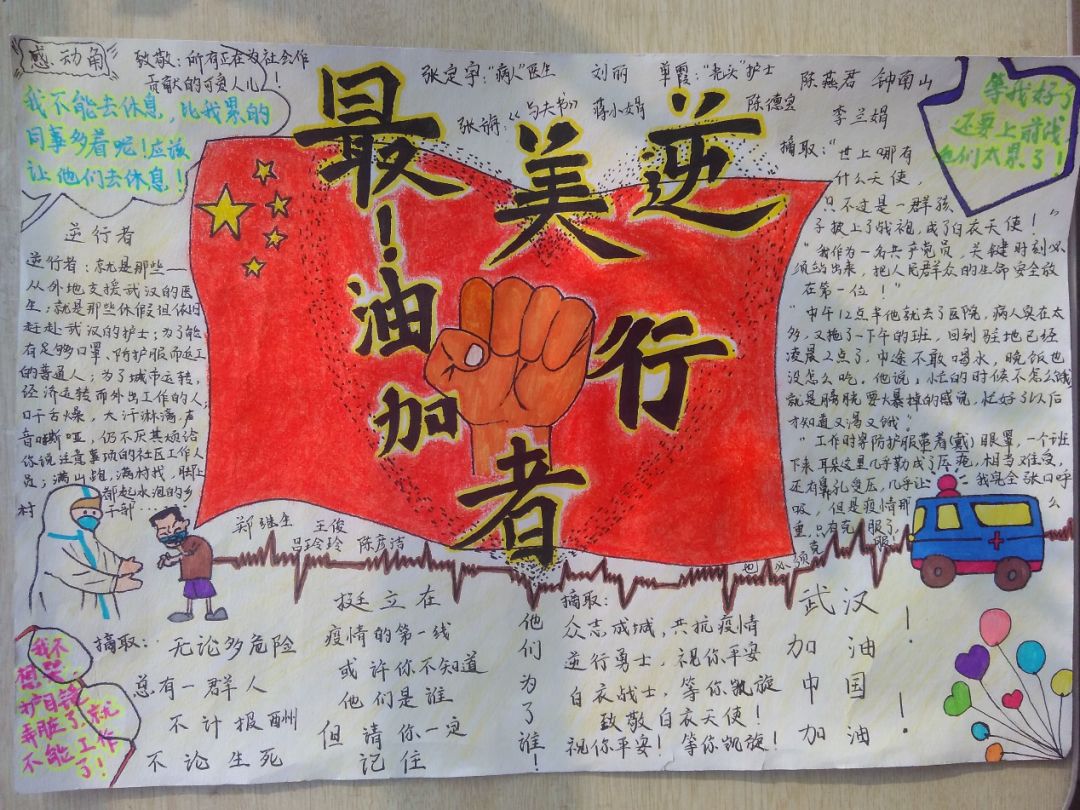 感动角
致敬：所有正在为社会作
贡献的可爱人儿！
我不能去休息，比我累的
同事多着呢！应该
让他们去休息！
张定宇："病人"医生
刘丽
单霞："光头"护士
陈燕君 钟南山
张旃：《与夫书》
蒋小娟
陈德宝
李兰娟
等我好了
还要上前线
他们太累了！
最美逆行者
！
加油
逆行者
逆行者：就是那些一
从外地支援武汉的医
生；就是那些休假但依旧
赶赴武汉的护士；为了能
有足够口罩、防护服而返工
的普通人；为了城市运转，
经济运转而外出工作的人；
口干舌燥，大汗淋漓，声
音嘶哑，仍不厌其烦给
你说注意事项的社区工作人
员；满山跑，满村找，脚上
都起水泡的乡
村
干部……
摘取："世上哪有
什么天使，
只不过是一群孩
子披上了战袍，成了白衣天使！"
"我作为一名共产党员，关键时刻必
须站出来，把人民群众的生命安全放
在第一位！"
"中午12点半他就去了医院，病人实在太
多，又拖了一下午的班，回到驻地已经
凌晨2点了，中途不敢喝水，晚饭也
没怎么吃。他说，忙的时候不怎么饿
就是膀胱要大暴掉的感觉，忙好了以后
才知道又渴又饿。
"工作时穿防护服带着(戴)眼罩，一个班
下来耳朵这里几乎勒成了压疮，相当难受，
还有鼻孔受压，几乎让
我完全张口呼
吸，但是疫情那
么
重，只有克服了，
也必须克服
郑继生 王俊
吕玲玲 陈彦洁
摘取：
无论多危险
总有一群人
不计报酬
不论生死
挺立在
疫情的第一线
或许你不知道
他们是谁
但请你一定
记住
他们为了谁！
摘取：
众志成城，共抗疫情
逆行勇士，祝你平安
白衣战士，等你凯旋
致敬白衣天使！
祝你平安！等你凯旋！
武汉
加油！
中国
加油！
我不
想哭
护目镜
弄脏了，就
不能工作
了！